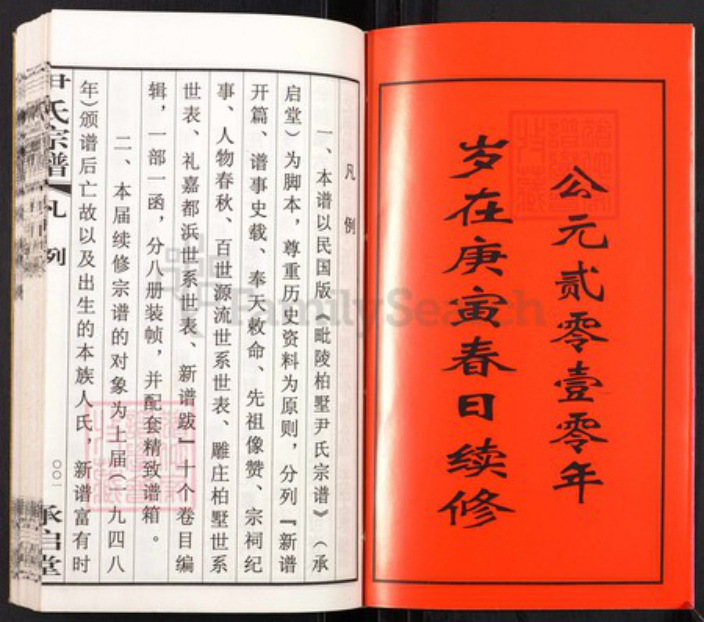 公元贰零壹零年
岁在庚寅春日续修
凡例
一、本谱以民国版《毗陵柏墅尹氏宗谱》（承
启堂）为脚本，尊重历史资料为原则，分列『新谱
开篇、谱事史载、奉天敕命、先祖像赞、宗祠纪
事、人物春秋、百世源流世系世表、雕庄柏墅世系
世表、礼嘉都浜世系世表、新谱跋』十个卷目编
辑，一部一函，分八册装帧，并配套精致谱箱。
二、本届续修宗谱的对象为上届（一九四八
年）颁谱后亡故以及出生的本族人氏，新谱富有时
尹氏宗谱 凡例
〇〇一
承启堂
FamilySearch